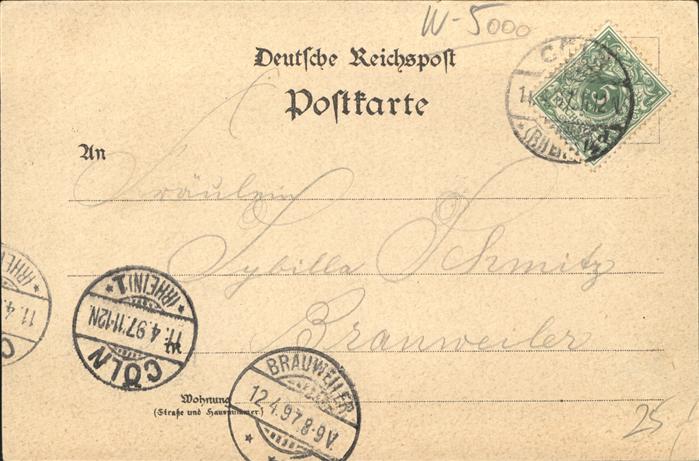 W-5000
Deutsche Reichspost
Postkarte
An
Fräulein
Sybilla Schmitz
Brauweiler
Wohnung
(Straße und Hausnummer)
CÖLN
11.4.97.11-12N.
*(RHEIN)1.*
BRAUWEILER
12.4.97.8-9V.
11.4.
(RHE
25
5